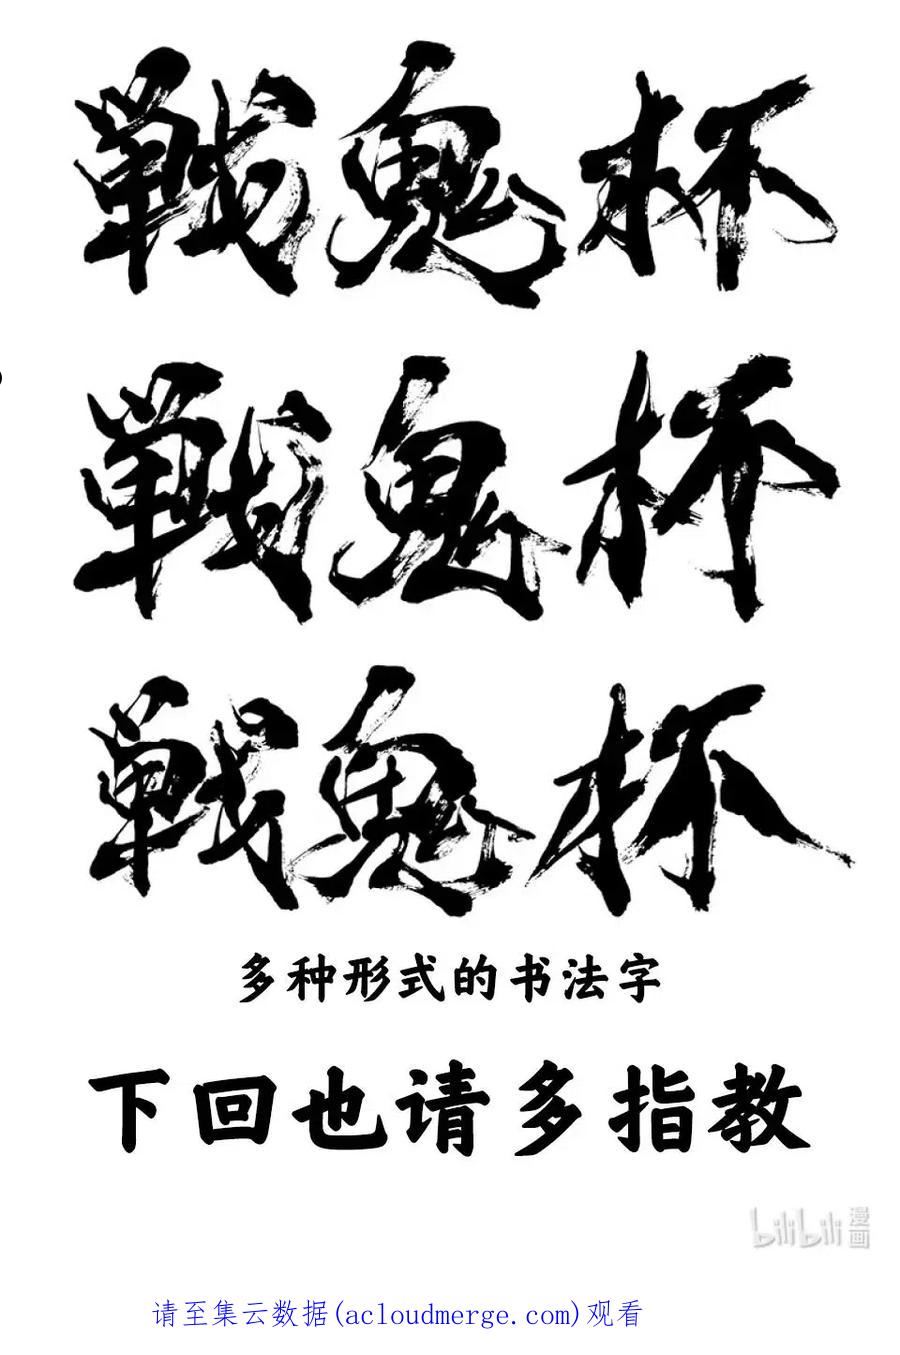 戦鬼杯
戦鬼杯
戦鬼杯
多种形式的书法字
下回也请多指教
bilibili漫画
请至集云数据(acloudmerge.com)观看